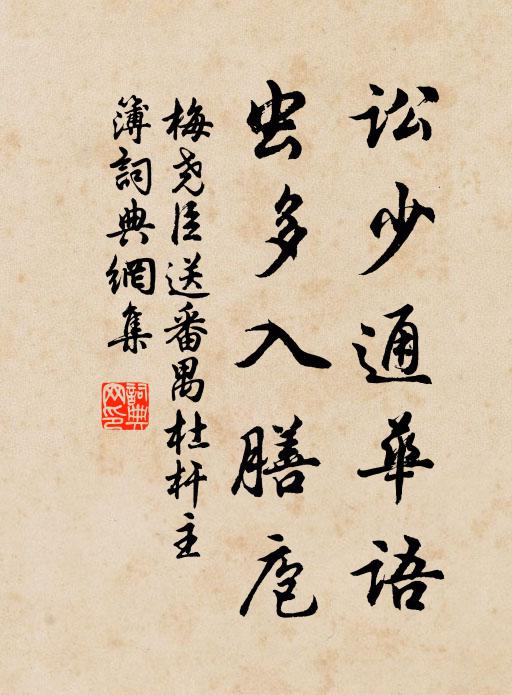 讼少通華语
虫多入膳庖
梅尧臣送番禺杜杆主
簿詞典網集
詞典网印